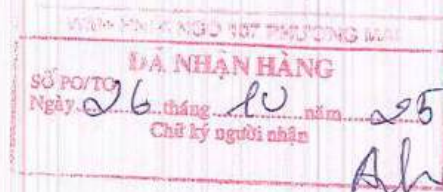 NGÕ 107 PHƯƠNG MAI
ĐÃ NHẬN HÀNG
SỐ PO/TO
Ngày 26 tháng 10 năm 25
Chữ ký người nhận